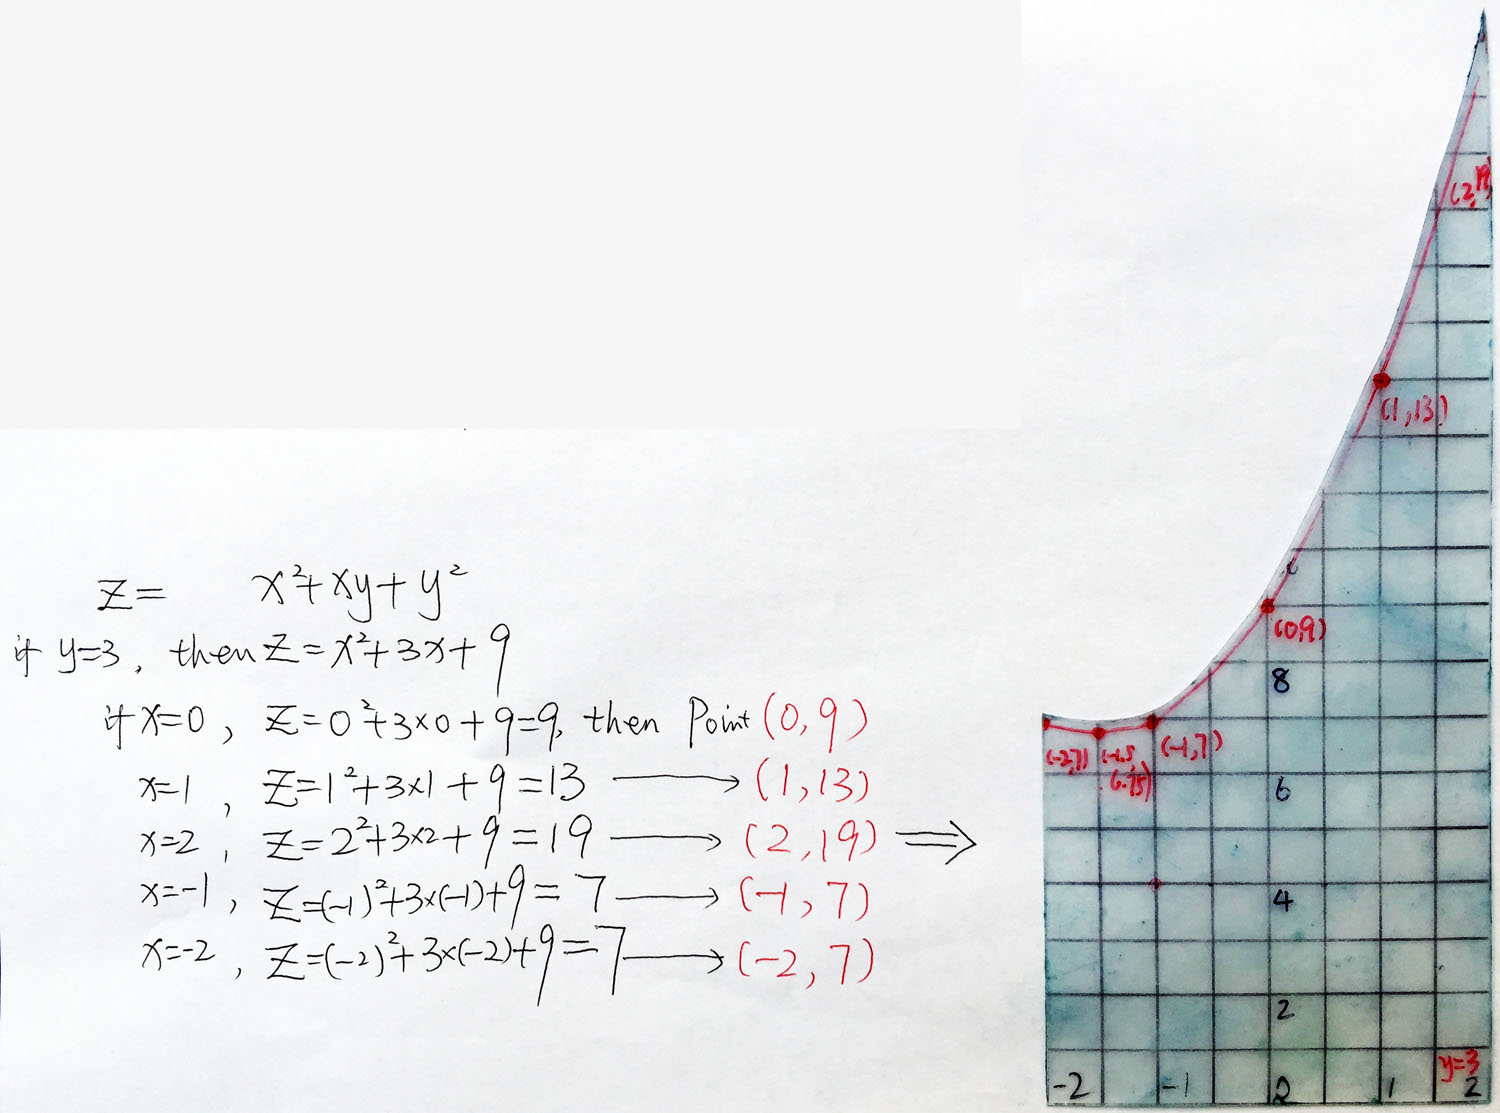 Z= x²+xy+y²
if y=3, then Z=x²+3x+9
if x=0, Z=0²+3×0+9=9, then Point (0,9)
x=1, Z=1²+3×1+9=13 → (1,13)
x=2, Z=2²+3×2+9=19 → (2,19) ⇒
x=-1, Z=(-1)²+3×(-1)+9=7 → (-1,7)
x=-2, Z=(-2)²+3×(-2)+9=7 → (-2,7)
(2,19)
(1,13)
(0,9)
8
(-2,7) (-1.5, (-1,7)
6.75)
6
4
2
y=3
-2 -1 0 1 2